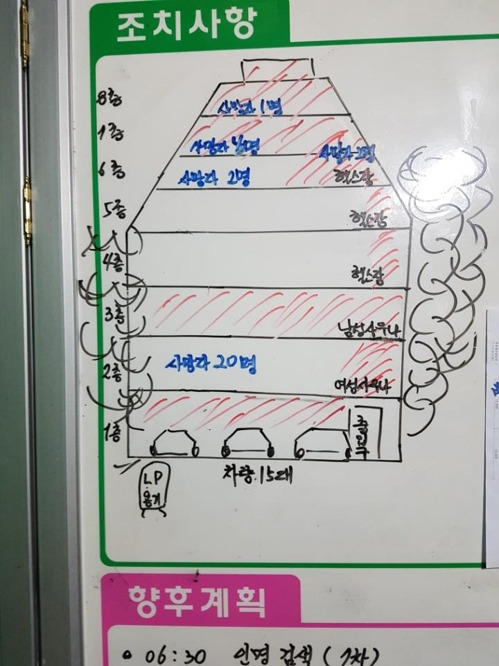 조치사항
8층
사망자 1명
7층
사망자 4명
사망자 2명
6층
사망자 2명
헬스장
5층
헬스장
4층
헬스장
3층
남성사우나
2층
사망자 20명
여성사우나
1층
출입구
LP
용기
차량.15대
향후계획
• 06:30 인명 검색 (1차)